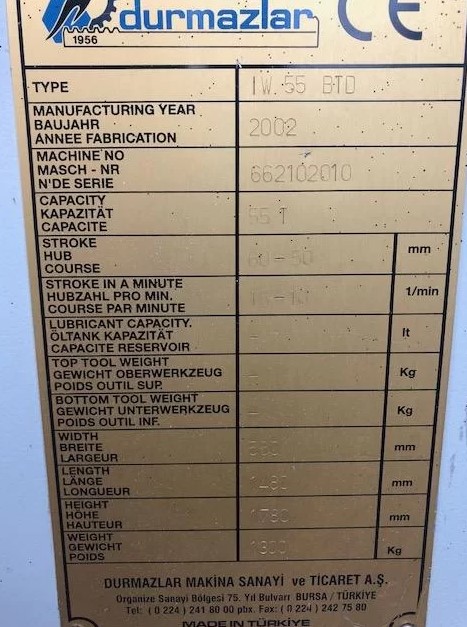 durmazlar CE
1956
TYPE IW.55 BTD
MANUFACTURING YEAR
BAUJAHR 2002
ANNEE FABRICATION
MACHINE NO
MASCH - NR 662102010
N'DE SERIE
CAPACITY
KAPAZITÄT 55 T
CAPACITE
STROKE
HUB mm
COURSE
STROKE IN A MINUTE
HUBZAHL PRO MIN. 1/min
COURSE PAR MINUTE
LUBRICANT CAPACITY.
ÖLTANK KAPAZİTÄT lt
CAPACITE RESERVOIR
TOP TOOL WEIGHT
GEWICHT OBERWERKZEUG - Kg
POIDS OUTIL SUP.
BOTTOM TOOL WEIGHT
GEWICHT UNTERWERKZEUG - Kg
POIDS OUTIL INF.
WIDTH
BREITE mm
LARGEUR
LENGTH
LÄNGE 1480 mm
LONGUEUR
HEIGHT
HÖHE 1780 mm
HAUTEUR
WEIGHT
GEWICHT Kg
POIDS
DURMAZLAR MAKİNA SANAYİ ve TİCARET A.Ş.
Organize Sanayi Bölgesi 75. Yıl Bulvarı BURSA / TÜRKİYE
Tel: ( 0 224 ) 241 80 00 pbx. Fax: ( 0 224 ) 242 75 80
MADE IN TÜRKİYE